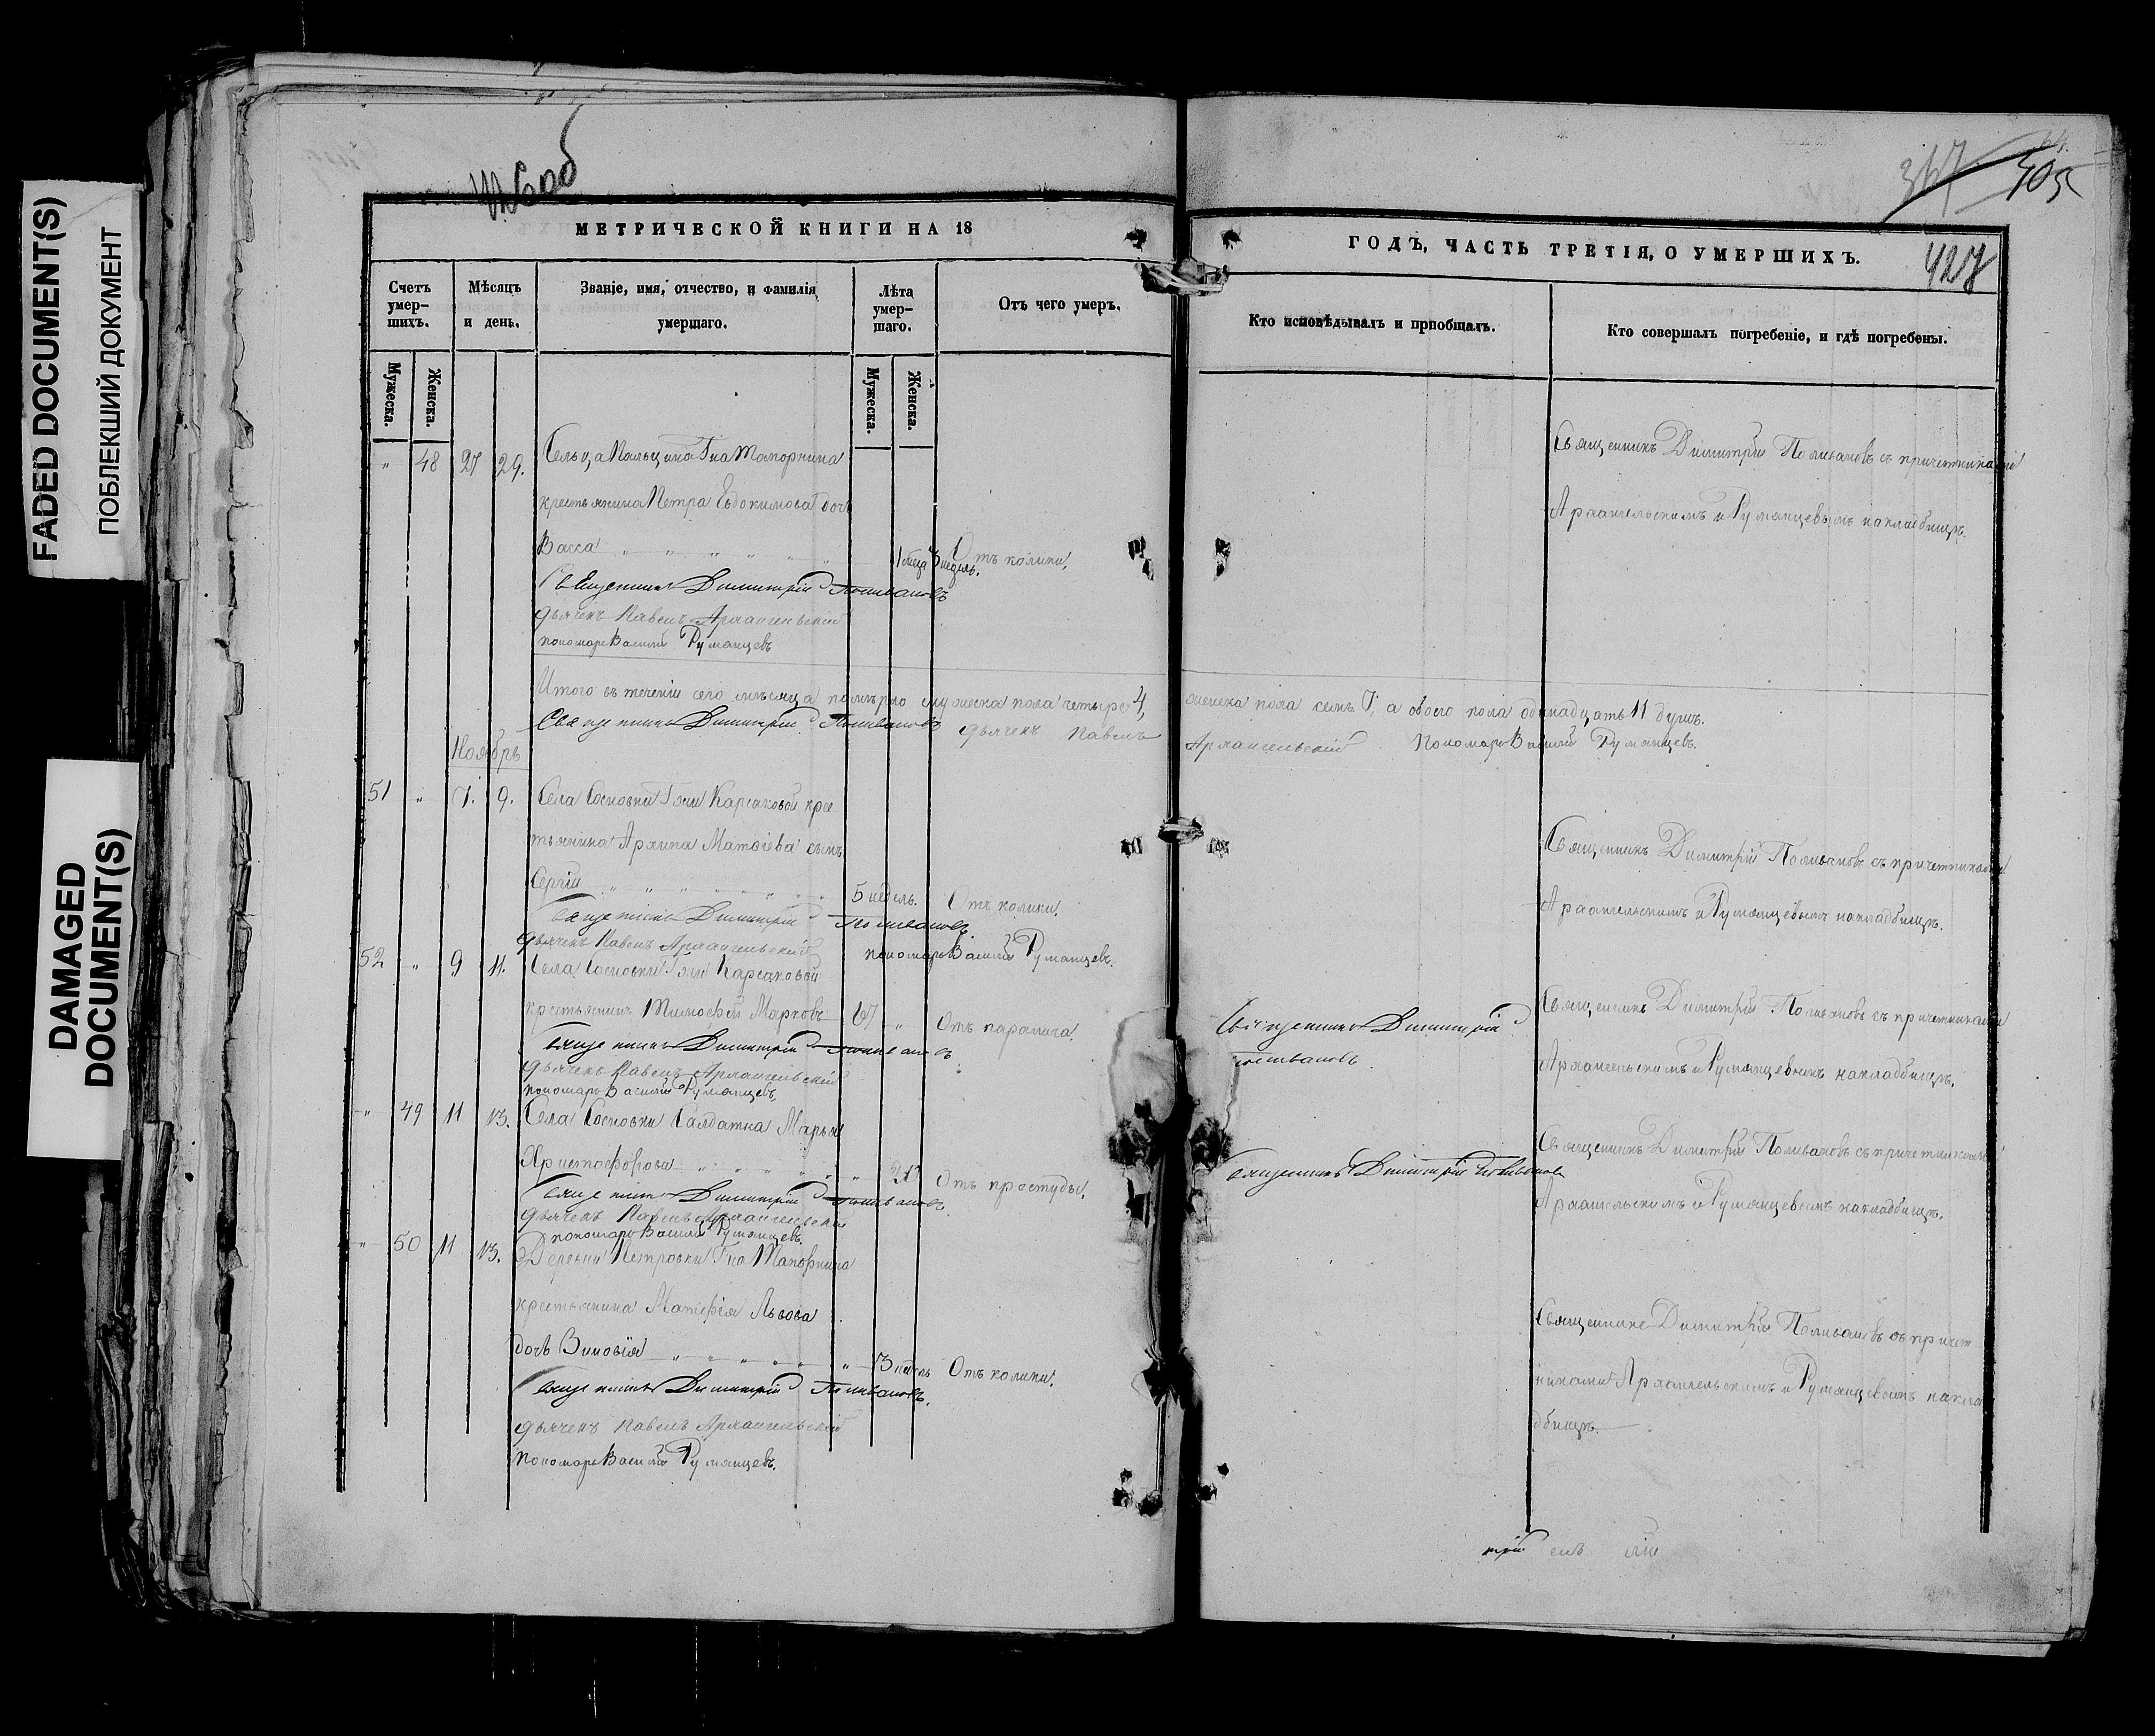 FADED DOCUMENT(S)
ПОБЛЕКШИЙ ДОКУМЕНТ
DAMAGED
DOCUMENT(S)
МЕТРИЧЕСКОЙ КНИГИ НА 18
Счетъ умер-шихъ.
Мѣсяцъ и день.
Званіе, имя, отчество, и фамилія умершаго.
Лѣта умер-шаго.
Отъ чего умеръ.
Мужеска.
Женска.
Мужеска.
Женска.
" 48 27 29. Сельца Пальцина Гна Топорнина
крестьянина Петра Евдокимова дочь
Васса 1 3 недель. Отъ колики.
Священникъ Димитрій Поливановъ
дьячекъ Павелъ Архангельскій
пономарь Василій Румянцевъ
Итого въ теченіи сего мѣсяца померло мужеска пола четыре 4, женска пола семь 7, а обоего пола одинадцать 11 душъ.
Священникъ Димитрій Поливановъ дьячекъ Павелъ Архангельскій Пономарь Василій Румянцевъ.
Ноябрь
51 " 7. 9. Села Сосновки Гжи Карсаковой крес
тьянина Архипа Матѳіева сынъ
Сергій 5 недель. Отъ колики.
Священникъ Димитрій Поливановъ
дьячекъ Павелъ Архангельскій пономарь Василій Румянцевъ.
52 " 9 11. Села Сосновки Гжи Карсаковой
крестьянинъ Тимоѳей Марковъ 67 " Отъ паралича.
Священникъ Димитрій Поливановъ
дьячекъ Павелъ Архангельскій
пономарь Василій Румянцевъ.
" 49 11 13. Села Сосновки Салдатка Марья
Христофорова Отъ простуды.
Священникъ Димитрій Поливановъ
дьячекъ Павелъ Архангельскій
пономарь Василій Румянцевъ.
" 50 11 13. Деревни Петровки Гна Топорнина
крестьянина Матѳея Львова
дочь Зиновія 3 недель Отъ колики.
Священникъ Димитрій Поливановъ.
дьячекъ Павелъ Архангельскій
пономарь Василій Румянцевъ.
347
405
427
ГОДЪ, ЧАСТЬ ТРЕТІЯ, О УМЕРШИХЪ.
Кто исповѣдывалъ и пріобщалъ.
Кто совершалъ погребеніе, и гдѣ погребены.
Священникъ Димитрій Поливановъ съ причетниками
Архангельскимъ и Румянцевымъ накладбищѣ.
Священникъ Димитрій Поливановъ съ причетниками
Архангельскимъ и Румянцевымъ накладбищѣ.
Священникъ Димитрій
Поливановъ
Священникъ Димитрій Поливановъ съ причетниками
Архангельскимъ и Румянцевымъ накладбищѣ.
Священникъ Димитрій Поливановъ
Священникъ Димитрій Поливановъ съ причетниками
Архангельскимъ и Румянцевымъ накладбищѣ.
Священникъ Димитрій Поливановъ съ причет
никами Архангельскимъ и Румянцевымъ накла
дбищѣ.
трій елъ лій